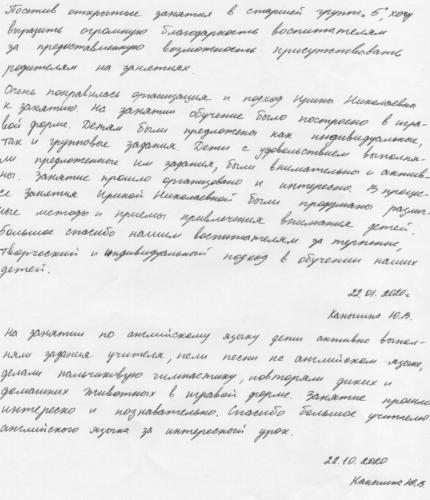 Посетив открытые занятия в старшей группе „Б" хочу
выразить огромную благодарность воспитателям
за предоставленную возможность присутствовать
родителям на занятиях.
Очень понравилась организация и подход Ирины Николаевны
к занятию. На занятии обучение было построено в игро-
вой форме. Детям были предложены как индивидуальные,
так и групповые задания. Дети с удовольствием выполня-
ли предложенные им задания, были внимательны и актив-
ны. Занятие прошло организовано и интересно. В процес-
се занятия Ириной Николаевной были продуманы различ-
ные методы и приемы привлечения внимания детей.
Большое спасибо нашим воспитателям за терпение,
творческий и индивидуальный подход в обучении наших
детей.
22.01.2020г
Ю.В.
На занятии по английскому языку дети активно выпол-
няли задания учителя, пели песни на английском языке,
делали пальчиковую гимнастику, повторяли диких и
домашних животных в игровой форме. Занятие прошло
интересно и познавательно. Спасибо большое учителю
английского языка за интересный урок.
22.10.2020
Ю.В.